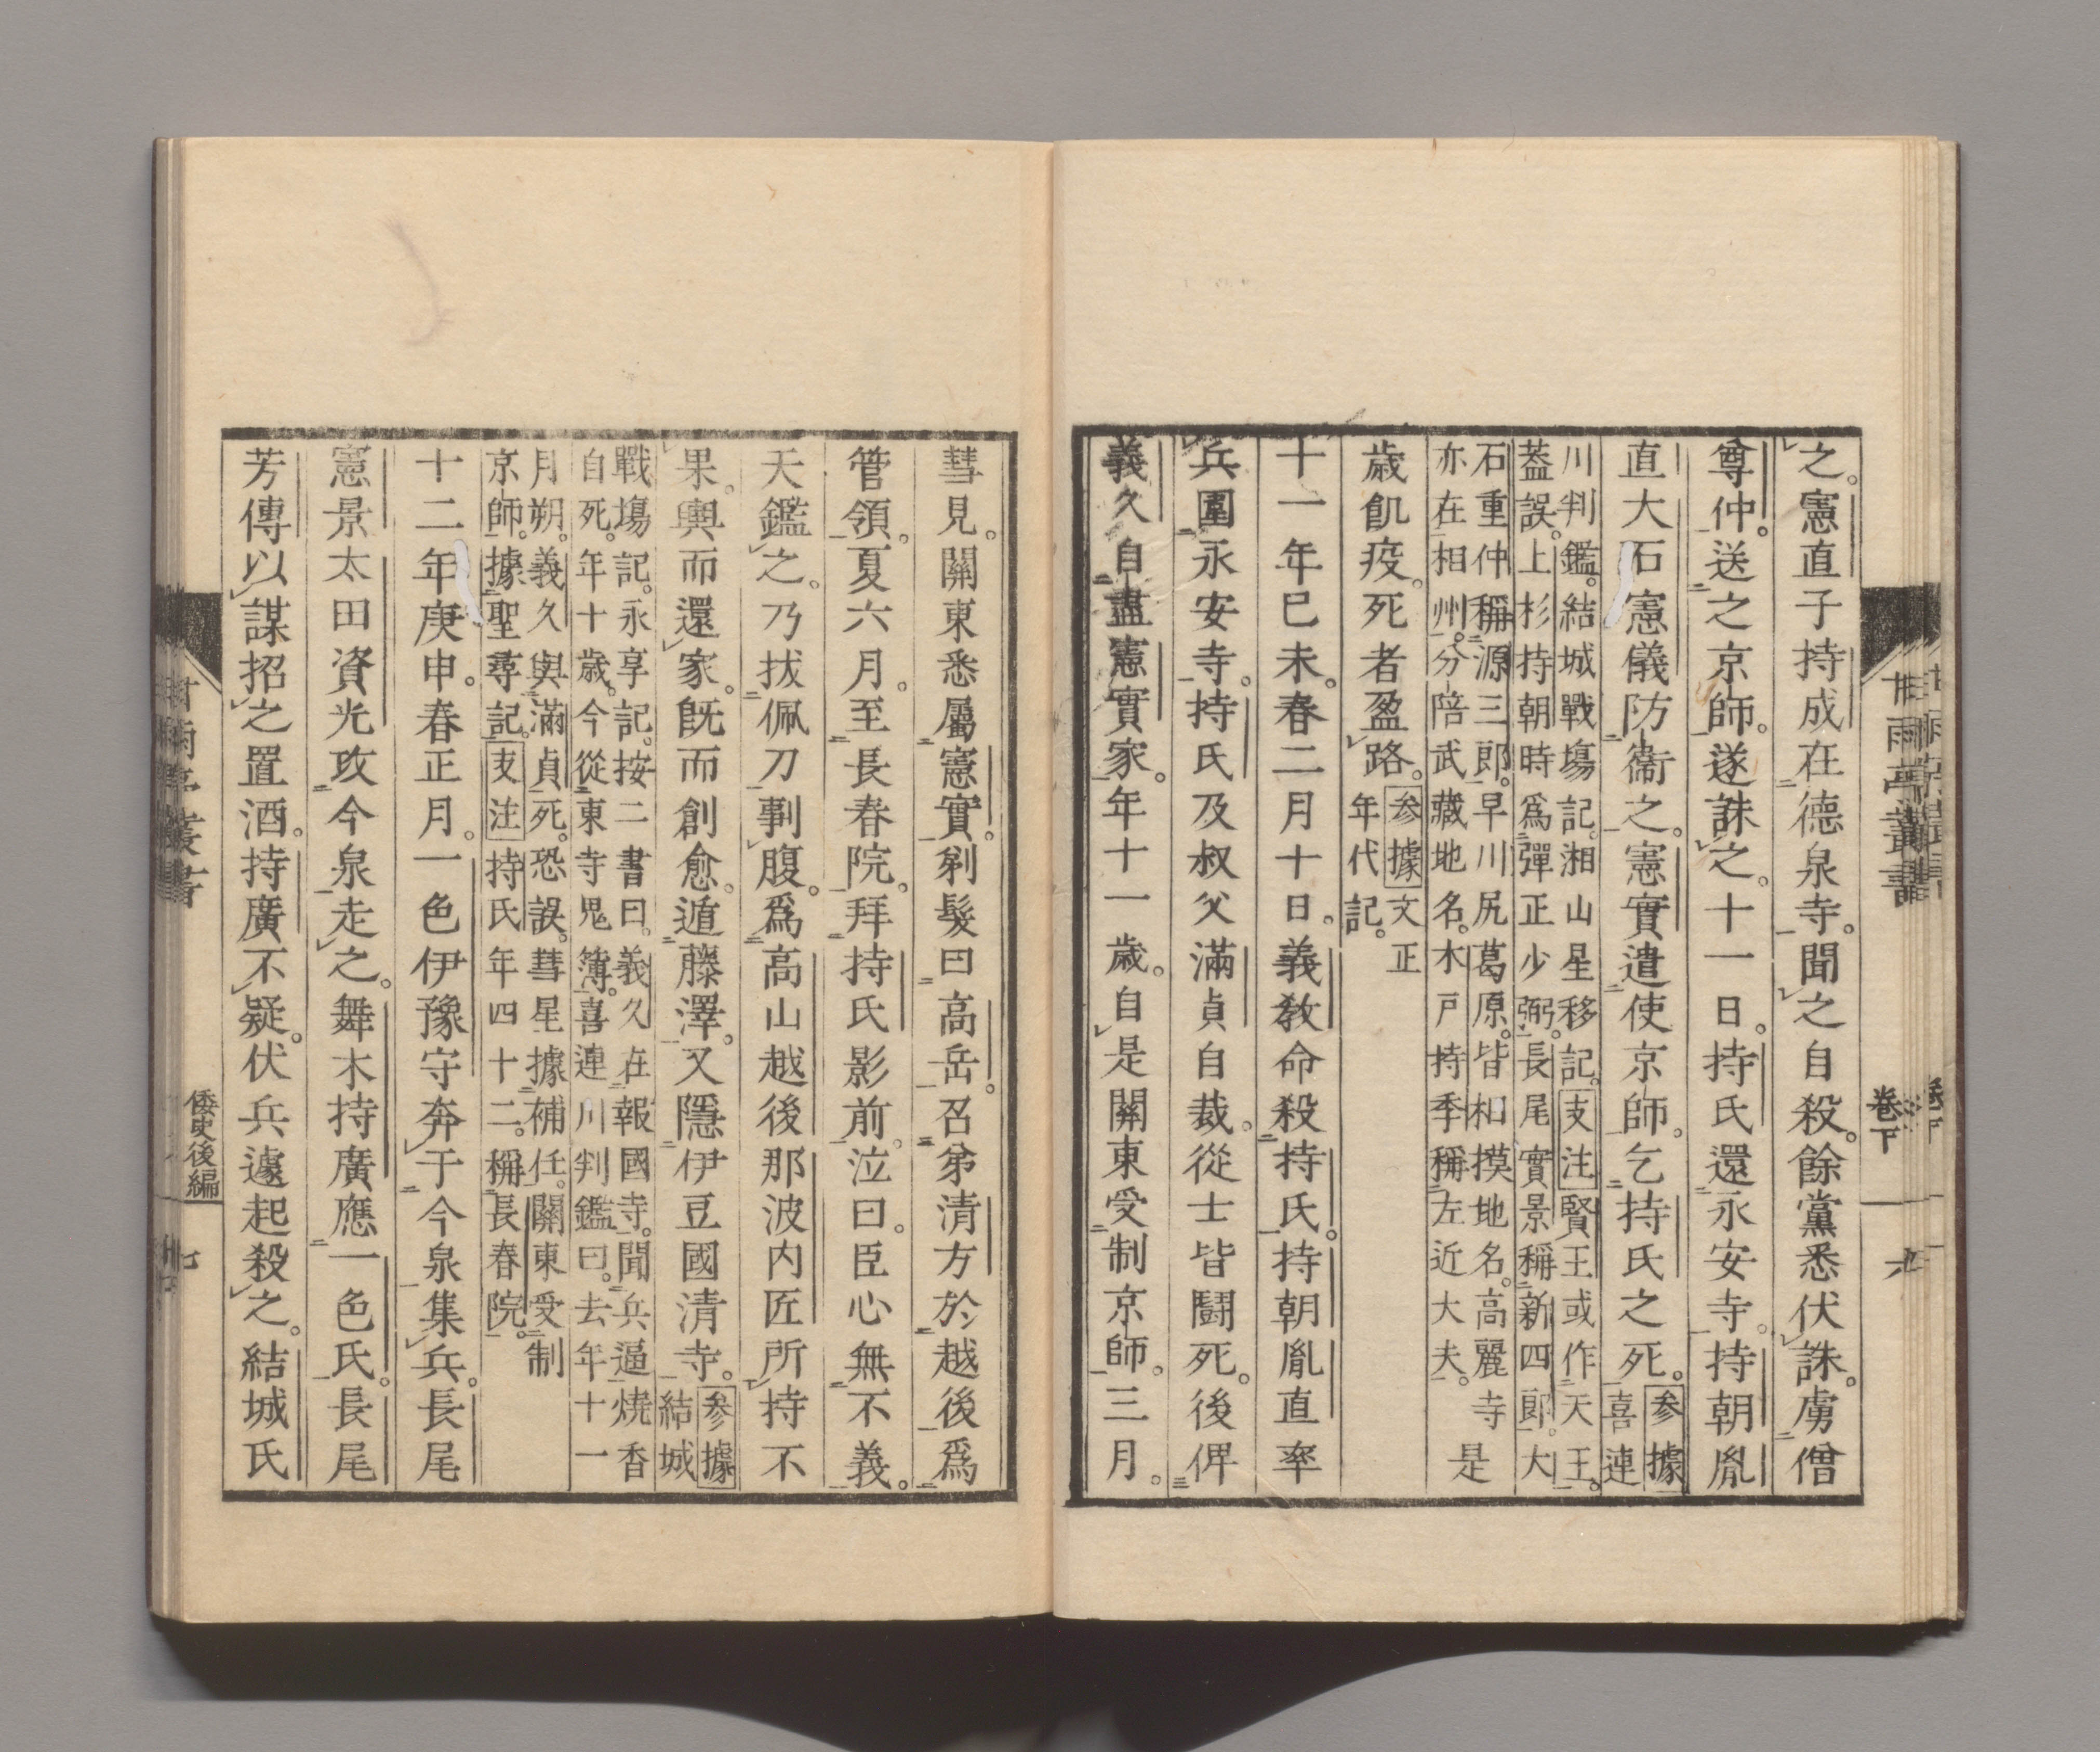 之。憲直子持成在德泉寺。聞之自殺。餘黨悉伏誅。虜僧
尊仲。送之京師。遂誅之。十一日。持氏還永安寺。持朝胤
直大石憲儀防衞之。憲實遣使京師。乞持氏之死。參據
喜連
川判鑑。結城戰場記。湘山星移記。支注賢王或作天王。
葢誤。上杉持朝時爲彈正少弼。長尾實景稱新四郎。大
石重仲稱源三郎。早川尻葛原。皆相摸地名。高麗寺
亦在相州。分陪武藏地名。木戸持季稱左近大夫。是
歲飢疫。死者盈路。參據文正
年代記。
十一年已未。春二月十日。義敎命殺持氏。持朝胤直率
兵圍永安寺。持氏及叔父滿貞自裁。從士皆鬪死。後俾
義久自盡憲實家。年十一歲。自是關東受制京師。三月。
卷下
九
彗見。關東悉屬憲實。剃髮曰高岳。召弟淸方於越後爲
管領。夏六月。至長春院。拜持氏影前。泣曰。臣心無不義。
天鑑之。乃拔佩刀剚腹。爲高山越後那波內匠所持不
果。輿而還家。旣而創愈。遁藤澤。又隱伊豆國淸寺。參據
結城
戰場記。永享記。按二書曰。義久在報國寺。聞兵逼燒香
自死。年十歲。今從東寺鬼簿。喜連川判鑑曰。去年十一
月朔。義久與滿貞死。恐誤。彗星據補任。關東受制
京師。據聖尋記。支注持氏年四十二。稱長春院。
十二年庚申。春正月。一色伊豫守奔于今泉集兵。長尾
憲景太田資光攻今泉走之。舞木持廣應一色氏。長尾
芳傳以謀招之置酒。持廣不疑。伏兵遽起殺之。結城氏
倭史後編